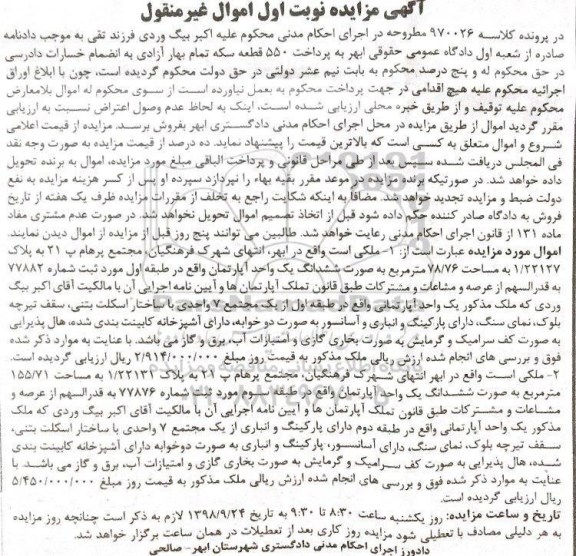 آگهی مزایده نوبت اول اموال غیرمنقول
در پرونده کلاسه ۹۷۰۰۲۶ مطروحه در اجرای احکام مدنی محکوم علیه اکبر بیگ وردی فرزند تقی به موجب دادنامه
صادره از شعبه اول دادگاه عمومی حقوقی ابهر به پرداخت ۵۵۰ قطعه سکه تمام بهار آزادی به انضمام خسارات دادرسی
در حق محکوم له و پنج درصد محکوم به بابت نیم عشر دولتی در حق دولت محکوم گردیده است، چون با ابلاغ اوراق
اجرائیه محکوم علیه هیچ اقدامی در جهت پرداخت محکوم به بعمل نیاورده است از سوی محکوم له اموال بلامعارض
محکوم علیه توقیف و از طریق خبره محلی ارزیابی شده است، اینک به لحاظ عدم وصول اعتراض نسبت به ارزیابی
مقرر گردید اموال از طریق مزایده در محل اجرای احکام مدنی دادگستری ابهر بفروش برسد. مزایده از قیمت اعلامی
شروع و اموال متعلق به کسی است که بالاترین قیمت را پیشنهاد نماید. ده درصد از قیمت مزایده به صورت وجه نقد
فی المجلس دریافت شده سپس بعد از طی مراحل قانونی و پرداخت الباقی مبلغ مورد مزایده، اموال به برنده تحویل
داده خواهد شد. در صورتیکه برنده مزایده در موعد مقرر بقیه بهاء را نپردازد سپرده او پس از کسر هزینه مزایده به نفع
دولت ضبط و مزایده تجدید خواهد شد. مضافا به اینکه شکایت راجع به تخلف از مقررات مزایده ظرف یک هفته از تاریخ
فروش به دادگاه صادر کننده حکم داده شود قبل از اتخاذ تصمیم اموال تحویل نخواهد شد. در صورت عدم مشتری مفاد
ماده ۱۳۱ از قانون اجرای احکام مدنی رعایت خواهد شد. طالبین می توانند پنج روز قبل از مزایده از اموال دیدن نمایند.
اموال مورد مزایده عبارت است از: ۱- ملکی است واقع در ابهر، انتهای شهرک فرهنگیان، مجتمع پرهام پ ۲۱ به پلاک
۱/۲۲۱۲۷ به مساحت ۷۸/۷۶ مترمربع به صورت ششدانگ یک واحد آپارتمان واقع در طبقه اول مورد ثبت شماره ۷۷۸۸۲
به قدرالسهم از عرصه و مشاعات و مشترکات طبق قانون تملک آپارتمان ها و آیین نامه اجرایی آن با مالکیت آقای اکبر بیگ
وردی که ملک مذکور یک واحد آپارتمانی واقع در طبقه اول از یک مجتمع ۷ واحدی با ساختار اسکلت بتنی، سقف تیرچه
بلوک، نمای سنگ، دارای پارکینگ و انباری و آسانسور به صورت دو خوابه، دارای آشپزخانه کابینت بندی شده، هال پذیرایی
به صورت کف سرامیک و گرمایش به صورت بخاری گازی و امتیازات آب، برق و گاز می باشد. با عنایت به موارد ذکر شده
فوق و بررسی های انجام شده ارزش ریالی ملک مذکور به قیمت روز مبلغ ۲/۹۱۴/۰۰۰/۰۰۰ ریال ارزیابی گردیده است.
۲- ملکی است واقع در ابهر انتهای شهرک فرهنگیان، مجتمع پرهام پ ۲۱ به پلاک ۱/۲۲۱۳۱ به مساحت ۱۵۵/۷۱
مترمربع به صورت ششدانگ یک واحد آپارتمان واقع در طبقه دوم مورد ثبت شماره ۷۷۸۷۶ به قدرالسهم از عرصه و
مشاعات و مشترکات طبق قانون تملک آپارتمان ها و آیین نامه اجرایی آن با مالکیت آقای اکبر بیگ وردی که ملک
مذکور یک واحد آپارتمانی واقع در طبقه دوم دارای پارکینگ و انباری از یک مجتمع ۷ واحدی با ساختار اسکلت بتنی،
سقف تیرچه بلوک، نمای سنگ، دارای آسانسور، پارکینگ و انباری به صورت دوخوابه دارای آشپزخانه کابینت بندی
شده، هال پذیرایی به صورت کف سرامیک و گرمایش به صورت بخاری گازی و امتیازات آب، برق و گاز می باشد. با
عنایت به موارد ذکر شده فوق و بررسی های انجام شده ارزش ریالی ملک مذکور به قیمت روز مبلغ ۵/۴۵۰/۰۰۰/۰۰۰
ریال ارزیابی گردیده است.
تاریخ و ساعت مزایده: روز یکشنبه ساعت ۸:۳۰ تا ۹:۳۰ به تاریخ ۱۳۹۸/۹/۲۴ لازم به ذکر است چنانچه روز مزایده
به هر دلیلی مصادف با تعطیلی شود مزایده روز کاری بعد از تعطیلات در همان ساعت برگزار خواهد شد.
دادورز اجرای احکام مدنی دادگستری شهرستان ابهر- صالحی